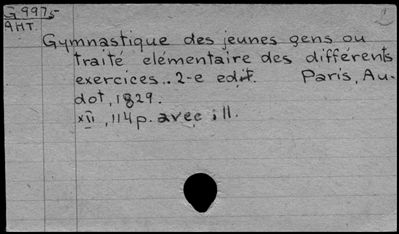 G 9975
АНТ.
Gymnastique des jeunes gens ou
traité elémentaire des différents
exercices.. 2-e edit. Paris, Au-
dot, 1829.
XII, 114 p. avec ill.